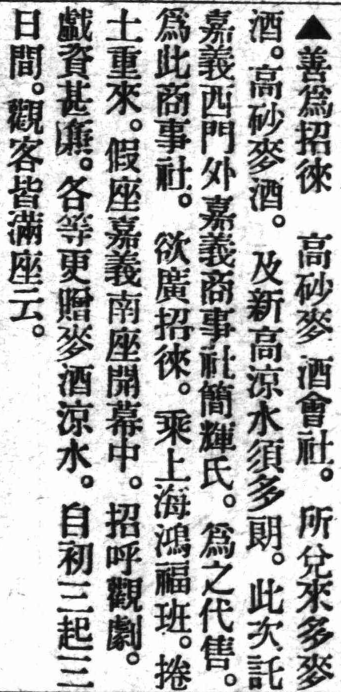 ▲善爲招徠　高砂麥酒會社。所兌來多麥
酒。高砂麥酒。及新高涼水須多朗。此次託
嘉義西門外嘉義商事社簡輝氏。爲之代售。
爲此商事社。欲廣招徠。乘上海鴻福班。捲
土重來。假座嘉義南座開幕中。招呼觀劇。
戲資甚廉。各等更贈麥酒涼水。自初三起三
日間。觀客皆滿座云。